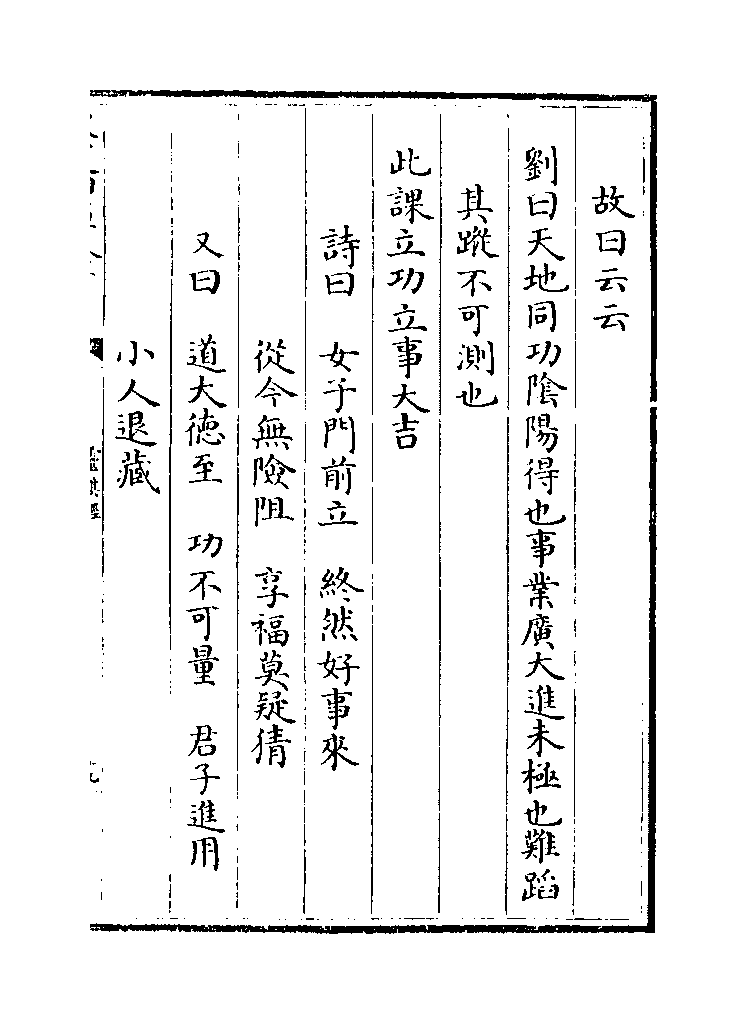 故曰云云
劉曰天地同功陰陽得也事業廣大進未極也難蹈
其蹤不可測也
此課立功立事大吉
詩曰　女子門前立　終然好事來
從今無險阻　享福莫疑猜
又曰　道大德至　功不可量　君子進用
小人退藏
靈棋經